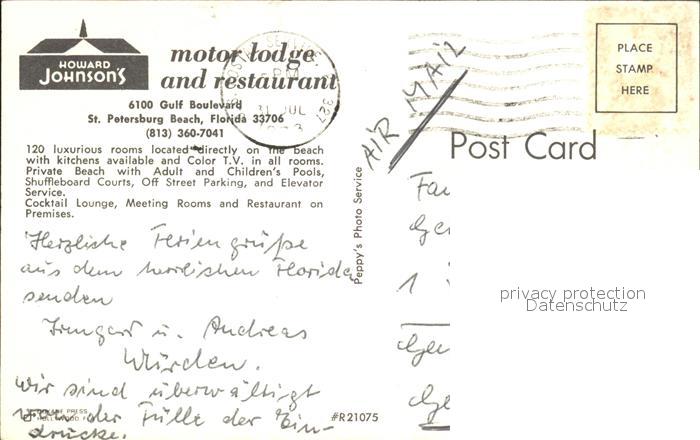 HOWARD
JOHNSON'S
motor lodge
and restaurant
6100 Gulf Boulevard
St. Petersburg Beach, Florida 33706
(813) 360-7041
120 luxurious rooms located directly on the beach
with kitchens available and Color T.V. in all rooms.
Private Beach with Adult and Children's Pools,
Shuffleboard Courts, Off Street Parking, and Elevator
Service.
Cocktail Lounge, Meeting Rooms and Restaurant on
Premises.
Herzliche Feriengrüße
aus dem herrlichen Florida
senden
Irmgard u. Andreas
Würden.
Wir sind überwältigt
von der Fülle der Ein-
drücke.
#R21075
Peppy's Photo Service
PM
31 JUL
AIR MAIL
PLACE
STAMP
HERE
Post Card
Fa
Ge
1
privacy protection
Datenschutz